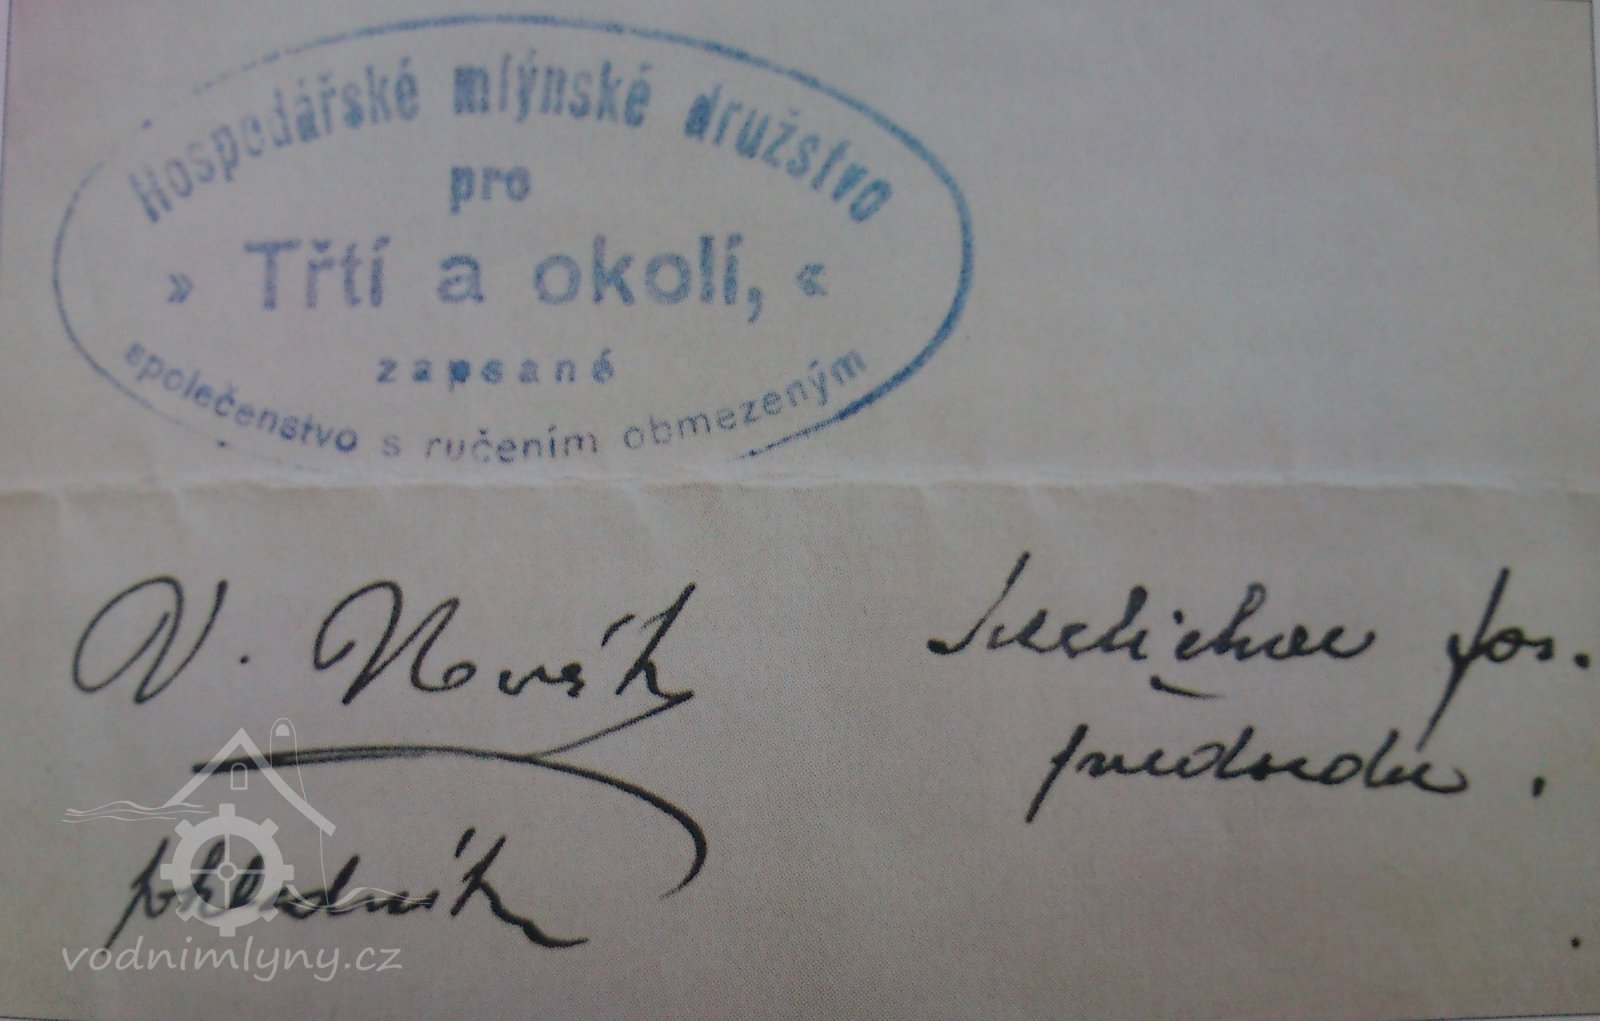 Hospodářské mlýnské družstvo
pro
» Třtí a okolí, «
zapsané
společenstvo s ručením obmezeným
V. Novák
pokladník
Jos.
předseda.
vodnimlyny.cz